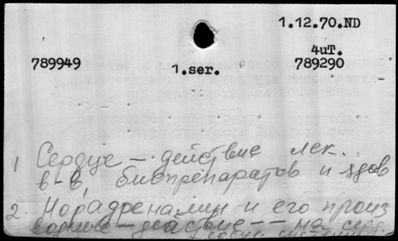 1.12.70.ND
4uT.
789949 1.ser. 789290
1 Сердце – действие лек.
в-в, биопрепаратов и ядов
2. Норадреналин и его произ
водные – действие – на серд